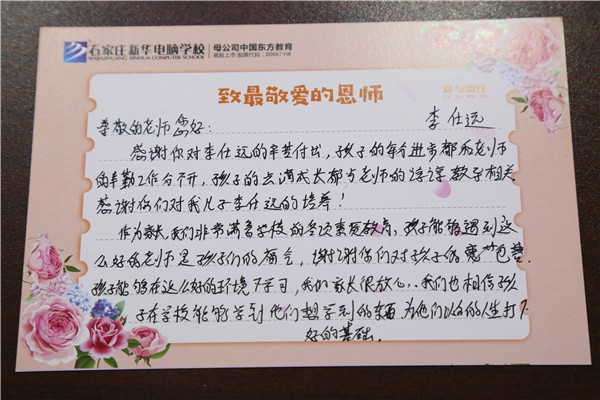 石家庄新华电脑学校
SHIJIAZHUANG XINHUA COMPUTER SCHOOL
母公司中国东方教育
港股上市 股票代码:00667.HK
致最敬爱的恩师
李仕远
尊敬的老师您好:
感谢你对李仕远的辛苦付出,孩子的每个进步都和老师
的辛勤工作分不开,孩子的点滴成长都与老师的谆谆教学相关
感谢你们对我儿子李仕远的培养!
作为家长我们非常满意学校的各项素质教育,孩子能够遇到这
么好的老师是孩子们的福气,谢谢你们对孩子的宽 包
孩子能够在这么好的环境下学习,我们家长很放心,我们也相信孩
子在学校能够学到他们想学到的东西,为他们以后的人生打下
好的基础.